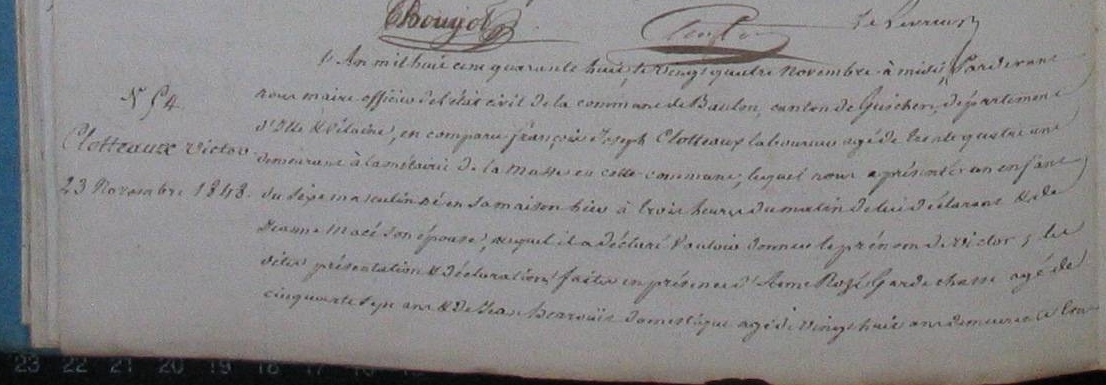 Boujot
Le Levreur
N° 54
Clotteaux Victor
23 Novembre 1848.
L'An mil huit cent quarante huit, le vingt quatre Novembre à midi, Pardevant
nous maire officier de l'état civil de la commune de Baulon, canton de Guichen, département
d'Ille & Vilaine, en comparu françois Joseph Clotteaux laboureur agé de trente quatre ans
demeurant à la métairie de la Masse en cette commune, lequel nous a présenté un enfant
du sexe masculin né en sa maison hier à trois heures du matin de lui déclarant & de
Jeanne Macé son épouse, auquel il a déclaré vouloir donner le prénom de Victor, les
dites présentation & déclaration faites en présence d' Rozé Garde chasse agé de
cinquante ans & de Jean domestique agé de vingt huit ans
23 22 21 20 19 18 17 16